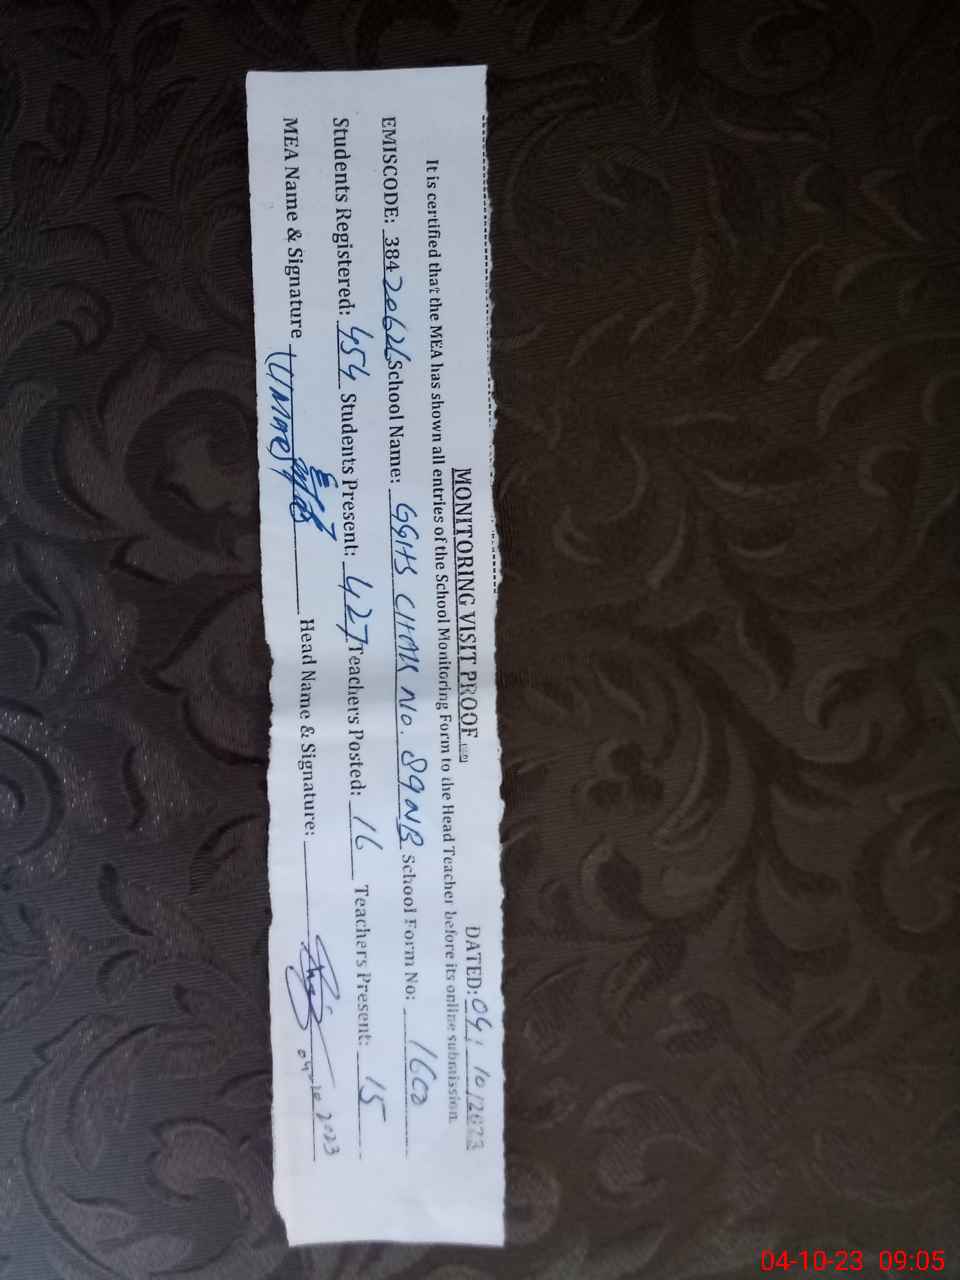 MONITORING VISIT PROOF
DATED: 04/10/2023
It is certified that the MEA has shown all entries of the School Monitoring Form to the Head Teacher before its online submission.
EMISCODE: 384 School Name: GGHS CHAK No. 89NB School Form No:
Students Registered: 454 Students Present: 427 Teachers Posted: 16 Teachers Present: 15
MEA Name & Signature Head Name & Signature:
04-10-2023
04-10-23 09:05